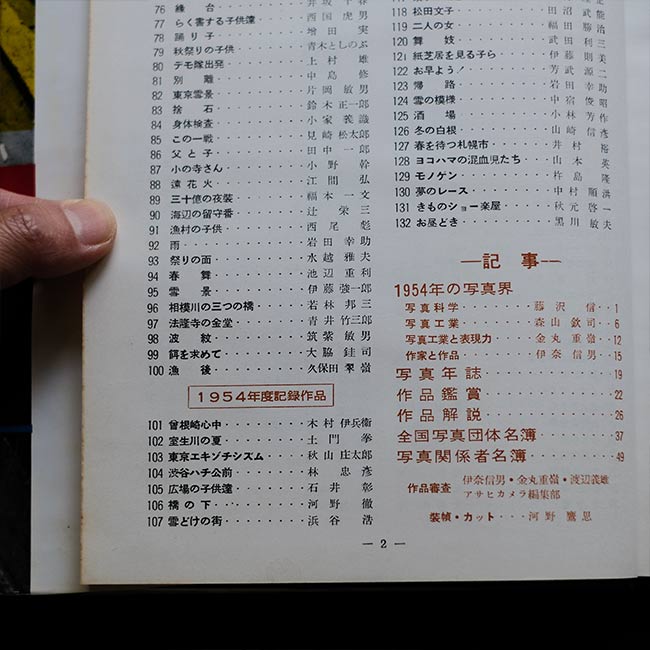 76 縁台・・・・井坂千春
77 らく書する子供達・・西国虎男
78 踊り子・・・・増田実
79 秋祭りの子供・・・・青木としのぶ
80 テモ嫁出発・・・・上村雄
81 別離・・・・中島修
82 東京雪景・・・・片岡敏男
83 捨石・・・・鈴木正一郎
84 身体検査・・・・小家義識
85 この一戦・・・・見崎松太郎
86 父と子・・・・田中一郎
87 小の寺さん・・・・小野幹
88 遠花火・・・・江間弘
89 三十億の夜裝・・・・福本一文
90 海辺の留守番・・・・辻栄三
91 漁村の子供・・・・西尾彪
92 雨・・・・岩田幸助
93 祭りの面・・・・水越雅夫
94 春舞・・・・池辺重利
95 雪景・・・・伊藤強一郎
96 相模川の三つの橋・・・・若林邦三
97 法隆寺の金堂・・・・青井竹三郎
98 波紋・・・・筑紫敏男
99 餌を求めて・・・・大脇銈司
100 漁後・・・・久保田翠嶺
1954年度記録作品
101 曽根崎心中・・・・木村伊兵衛
102 室生川の夏・・・・土門拳
103 東京エキゾチシズム・・・・秋山庄太郎
104 渋谷ハチ公前・・・・林忠彦
105 広場の子供達・・・・石井彰
106 橋の下・・・・河野徹
107 雪どけの街・・・・浜谷浩
118 松田文子・・・・田沼武能
119 二人の女・・・・福田勝治
120 舞妓・・・・武田利三
121 紙芝居を見る子ら・・・・伊藤則美
122 お早よう!・・・・芳武源二
123 帰路・・・・岩田幸助
124 雪の模様・・・・中宿俊昭
125 酒場・・・・小林芳作
126 冬の白根・・・・山崎信彦
127 春を待つ札幌市・・・・井村裕
128 ヨコハマの混血児たち・・山本英
129 モノケン・・・・杵島隆
130 夢のレース・・・・中村順洪
131 きものショー楽屋・・・・秋元啓一
132 お昼どき・・・・黒川敏夫
―記事―
1954年の写真界
写真科学・・・・藤沢信・・1
写真工業・・・・森山欽司・・6
写真工業と表現力・・・・金丸重嶺・・12
作家と作品・・・・伊奈信男・・15
写真年誌・・・・19
作品鑑賞・・・・22
作品解説・・・・26
全国写真団体名簿・・・・37
写真関係者名簿・・・・49
作品審査 伊奈信男・金丸重嶺・渡辺義雄
アサヒカメラ編集部
裝幀・カット・・・河野鷹思
― 2 ―